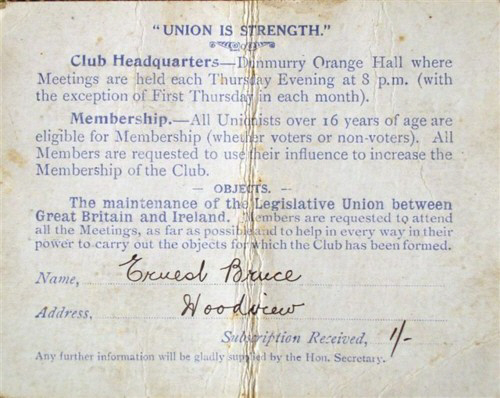 "UNION IS STRENGTH."
Club Headquarters—Dunmurry Orange Hall where
Meetings are held each Thursday Evening at 8 p.m. (with
the exception of First Thursday in each month).
Membership.—All Unionists over 16 years of age are
eligible for Membership (whether voters or non-voters). All
Members are requested to use their influence to increase the
Membership of the Club.
— OBJECTS. —
The maintenance of the Legislative Union between
Great Britain and Ireland. Members are requested to attend
all the Meetings, as far as possible and to help in every way in their
power to carry out the objects for which the Club has been formed.
Name, Ernest Bruce
Address, Woodview
Subscription Received, 1/-
Any further information will be gladly supplied by the Hon. Secretary.